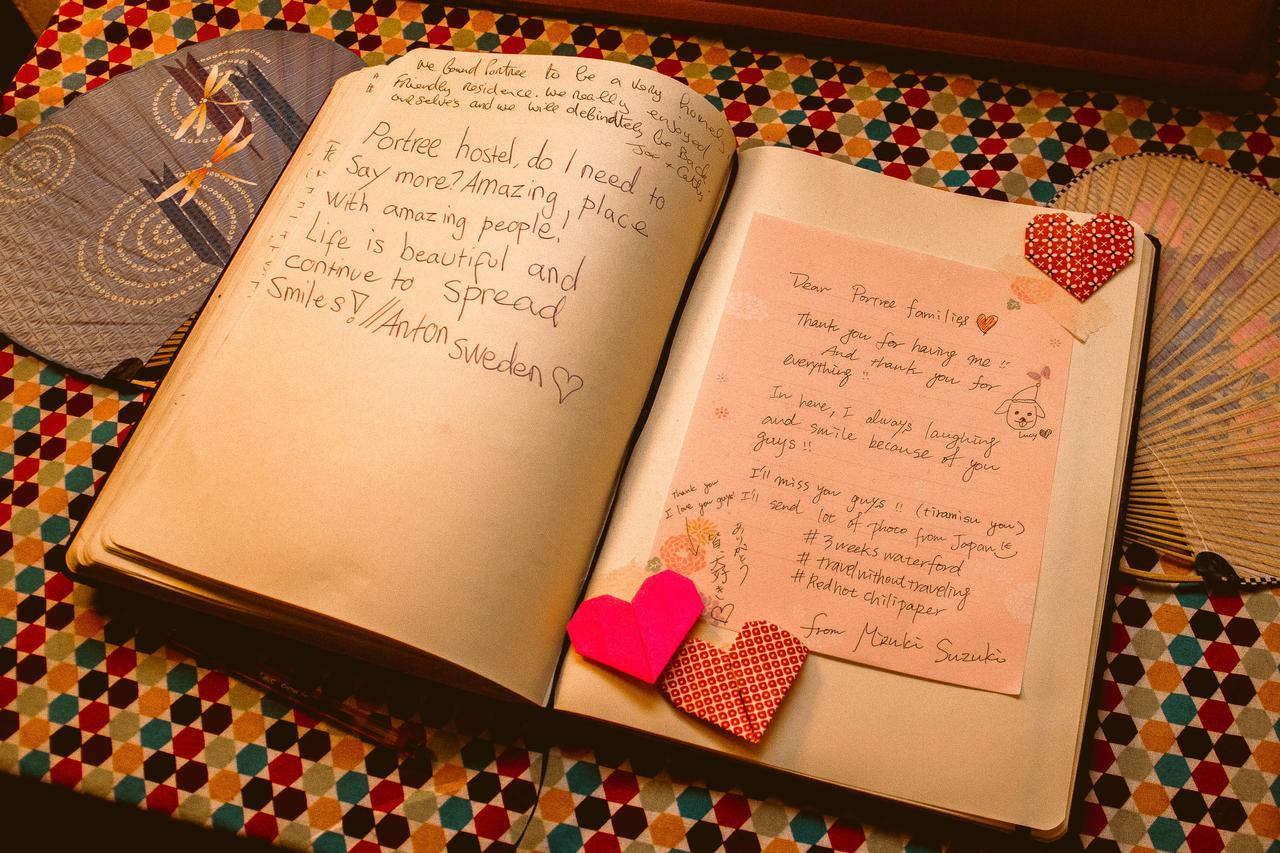 We found Portree to be a very homely
friendly residence. We really enjoyed
ourselves and we will definitely be back
Joe + Cathy
Portree hostel, do I need to
say more? Amazing place
with amazing people!
Life is beautiful and
continue to spread
smiles! //Anton
Sweden ♡
Dear Portree families
Thank you for having me !!
And thank you for
everything !!
Lucy
In here, I always laughing
and smile because of you
guys !!
I'll miss you guys !! (tiramisu you)
I'll send lot of photo from Japan
# 3weeks waterford
# travelwithouttraveling
# Redhot chilipaper
from Mizuki Suzuki
Thank you
I love you guys!
ありがとう
大好き